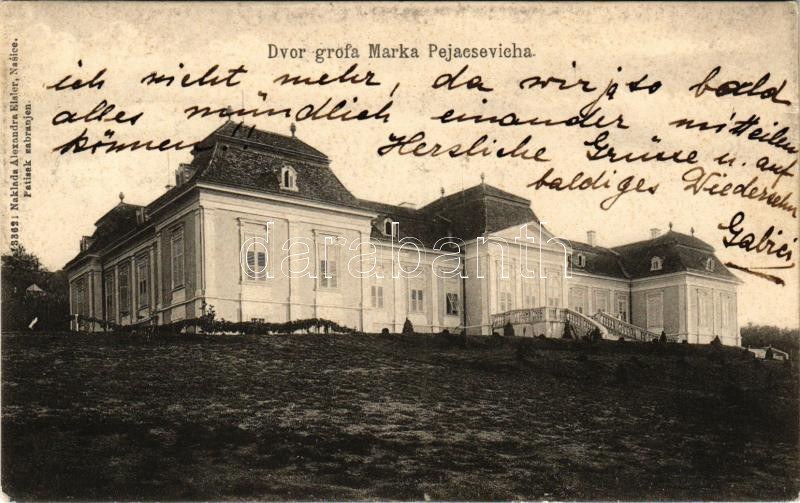 Dvor grofa Marka Pejacsevicha.
ich nicht mehr, da wir ja so bald
alles mündlich einander mitteilen
können!! Herzliche Grüsse u. auf
baldiges Wiedersehn
Gabici
13362: Naklada Alexandra Eisler, Našice.
Patisak zabranjen.
darabanth.com